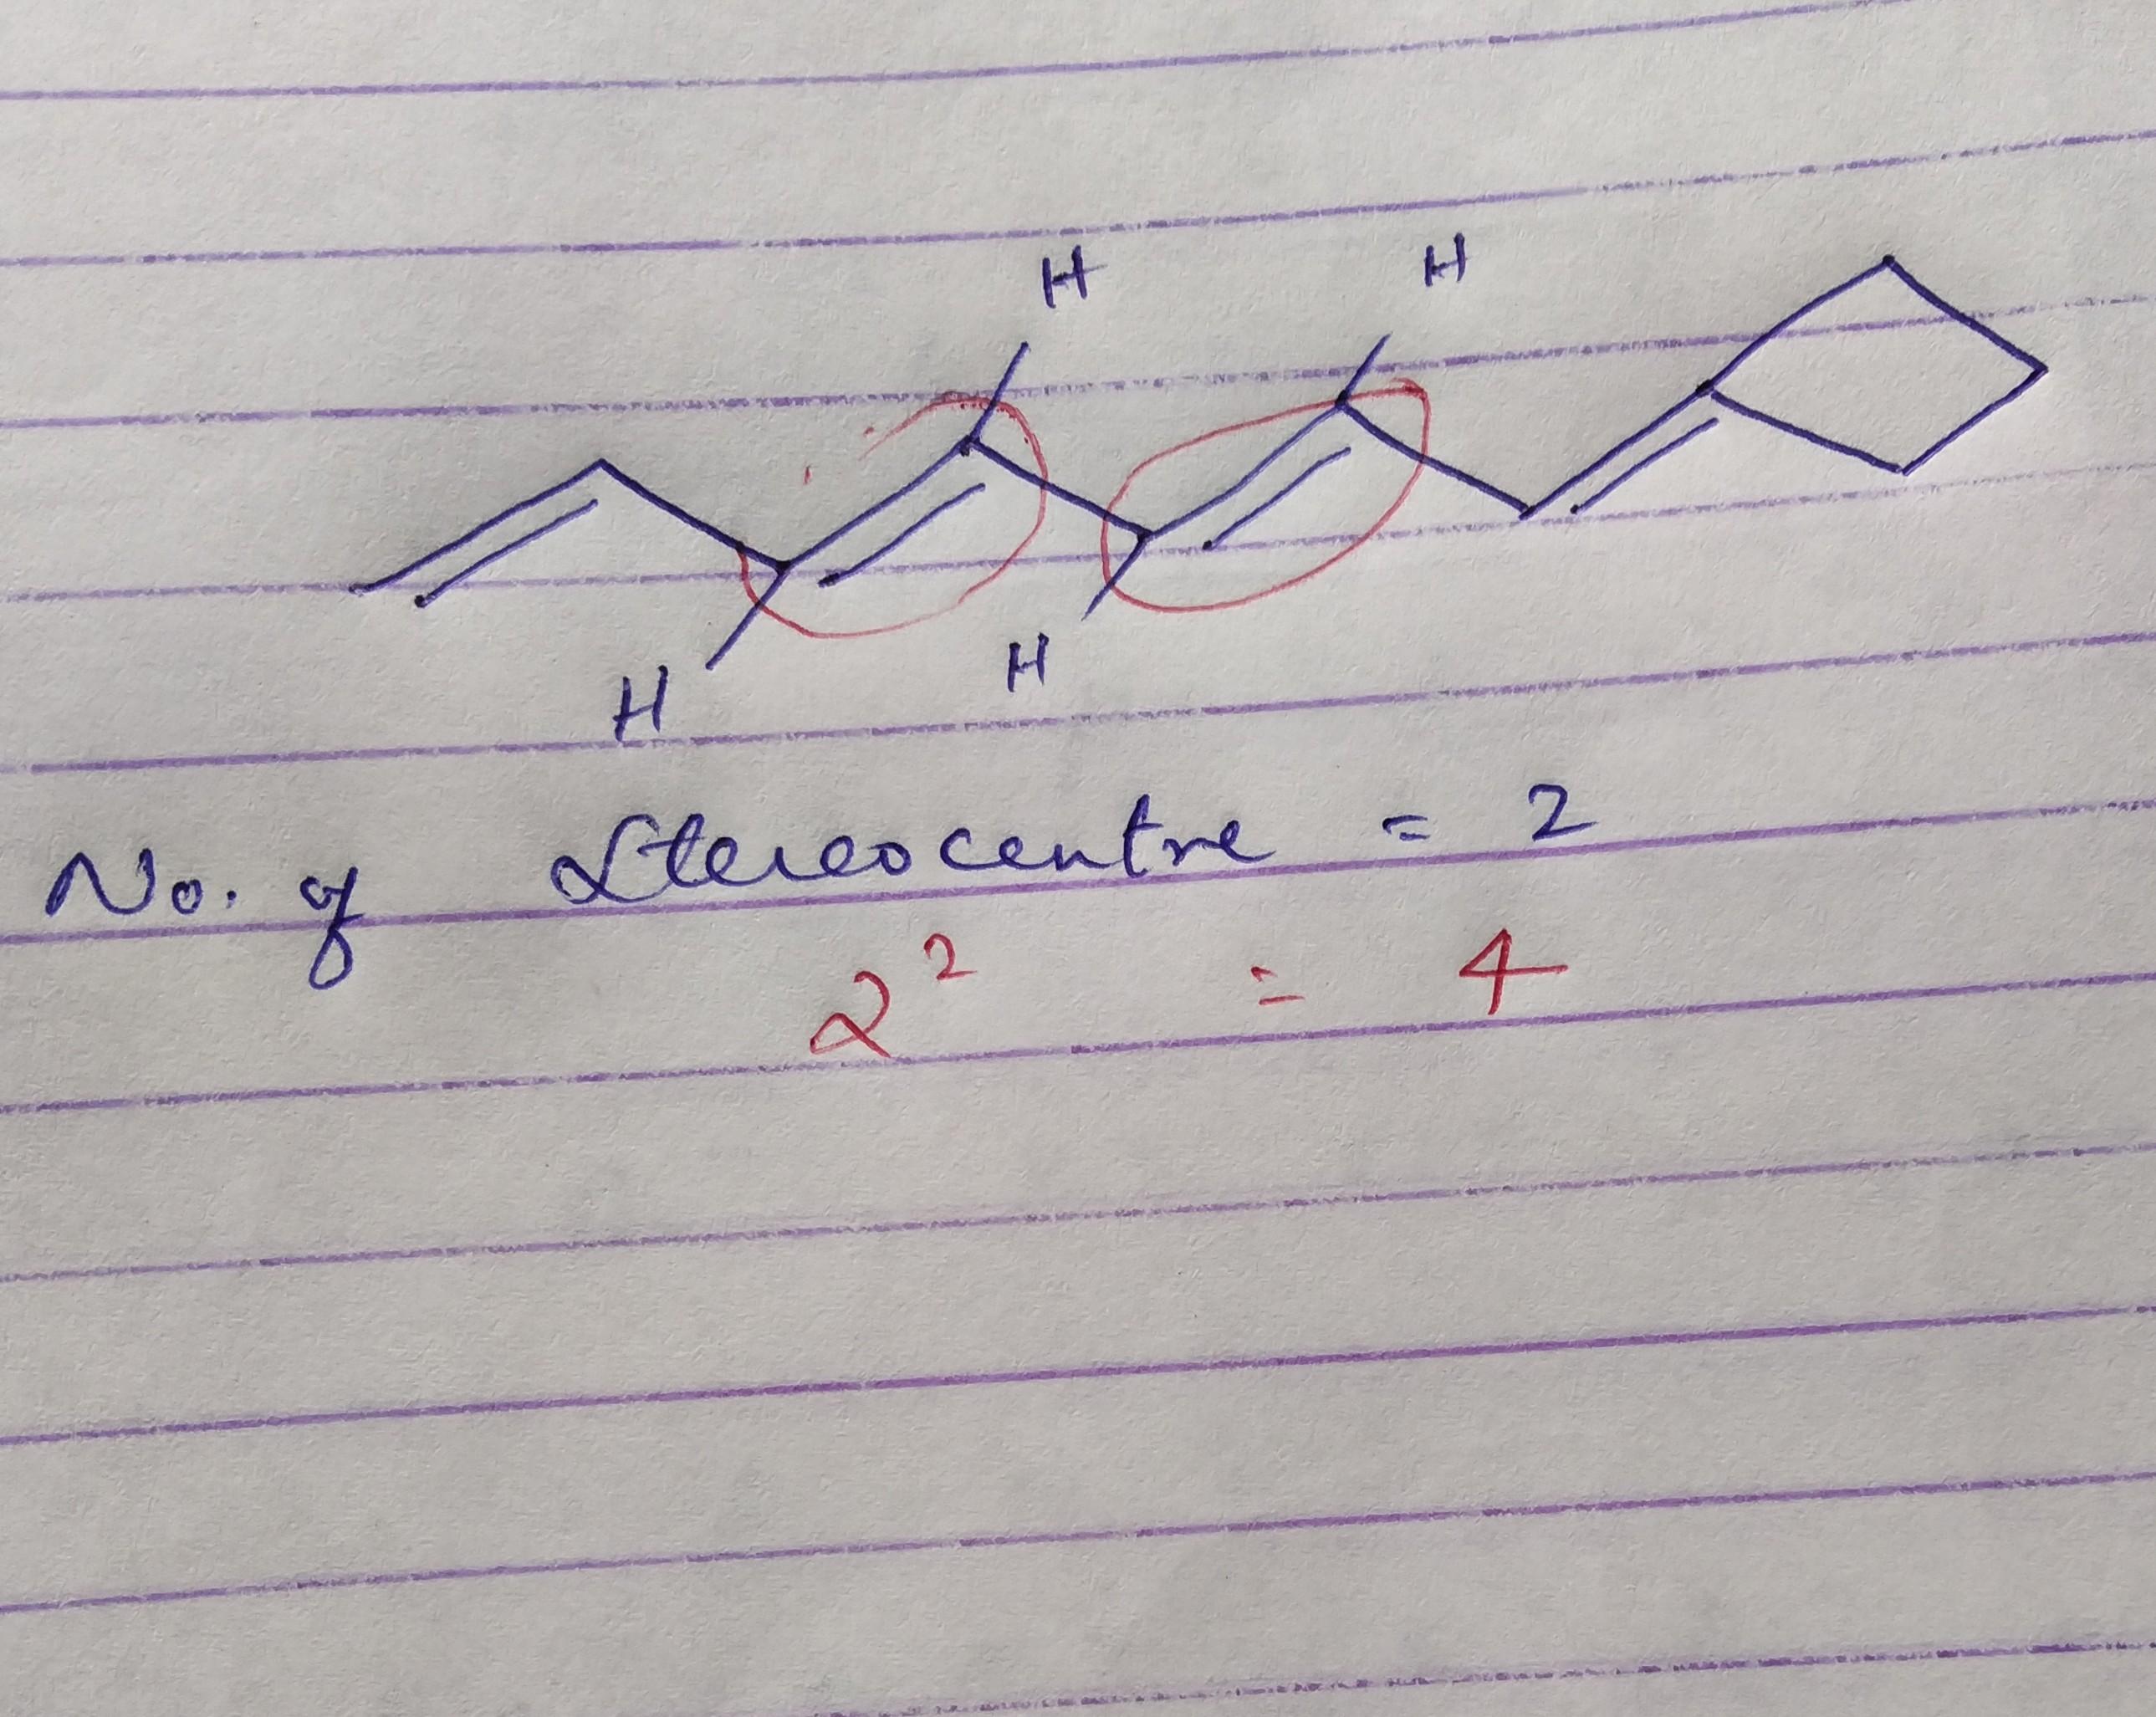 H H
H H
No. of Stereocentre = 2
2² = 4